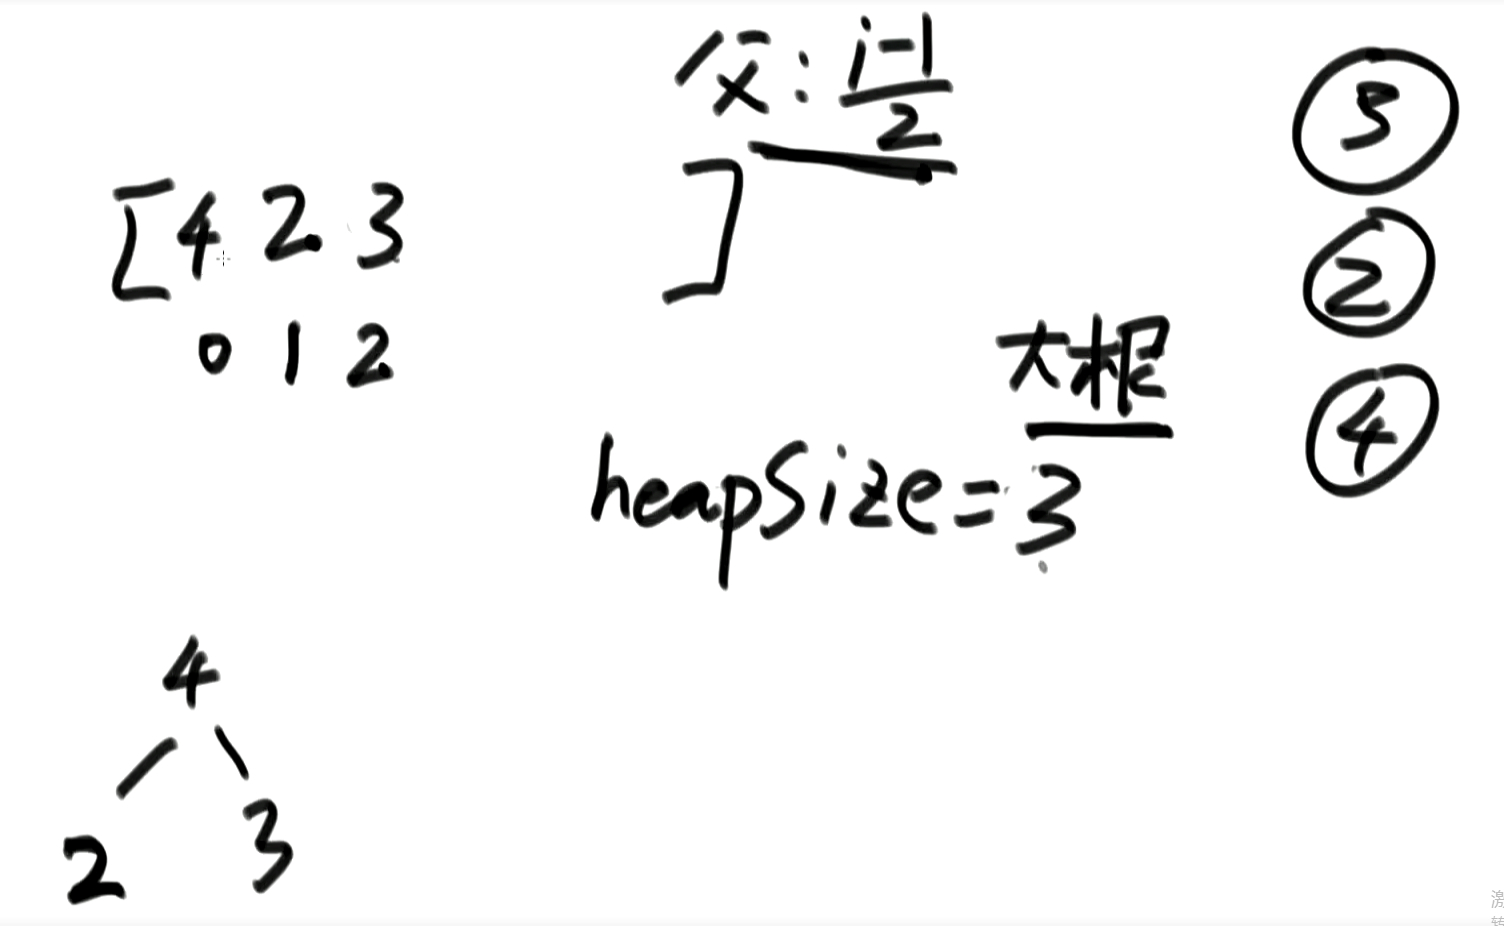 父: i-1
2
[4 2. 3 ]
0 1 2.
大根
heapSize=3
5
2
4
4
2 3
激
转